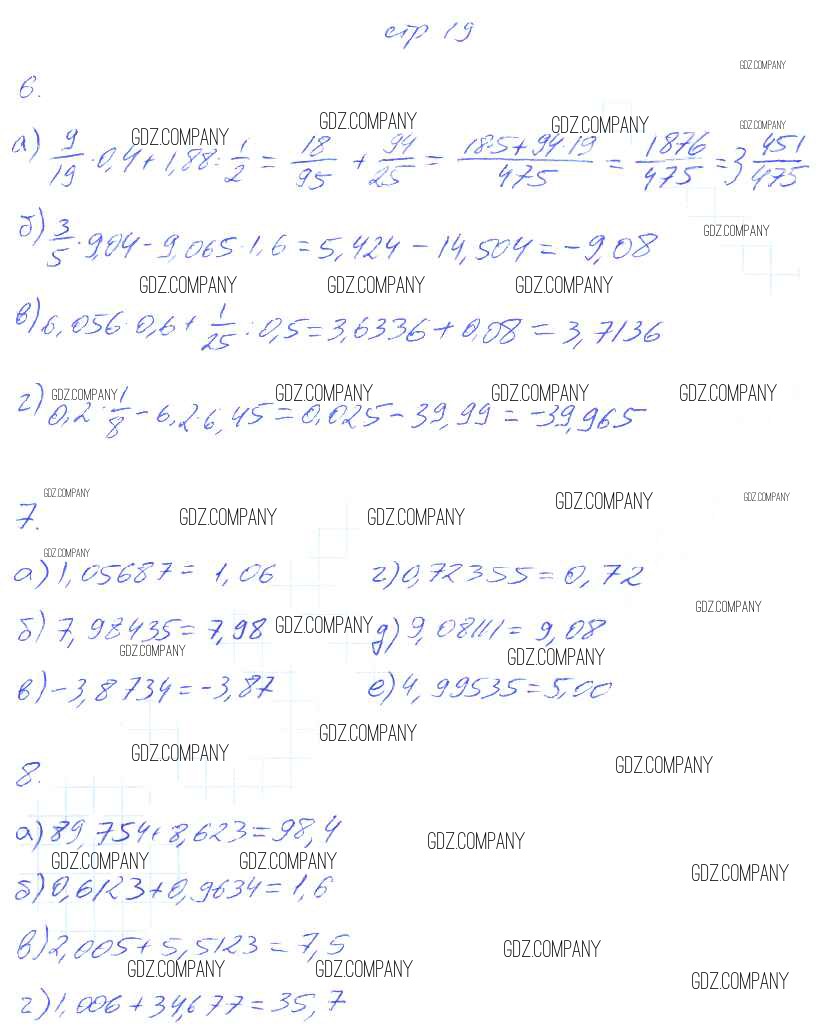 стр 19
GDZ.COMPANY
6.
GDZ.COMPANY GDZ.COMPANY GDZ.COMPANY GDZ.COMPANY
а) 9/19 · 0,4 + 1,88 : 1/2 = 18/95 + 94/25 = (18·5+94·19)/475 = 1876/475 = 3 451/475
б) 3/5 · 9,04 - 9,065 · 1,6 = 5,424 - 14,504 = -9,08
GDZ.COMPANY
GDZ.COMPANY GDZ.COMPANY GDZ.COMPANY
в) 6,056 · 0,6 + 1/25 : 0,5 = 3,6336 + 0,08 = 3,7136
GDZ.COMPANY GDZ.COMPANY GDZ.COMPANY GDZ.COMPANY
г) 0,2 · 1/8 - 6,2 · 6,45 = 0,025 - 39,99 = -39,965
GDZ.COMPANY GDZ.COMPANY GDZ.COMPANY
7.
GDZ.COMPANY GDZ.COMPANY
GDZ.COMPANY
а) 1,05687 = 1,06 г) 0,72355 = 0,72
GDZ.COMPANY
б) 7,98435 = 7,98 GDZ.COMPANY д) 9,08111 = 9,08
GDZ.COMPANY GDZ.COMPANY
в) -3,8734 = -3,87 е) 4,99535 = 5,00
GDZ.COMPANY
GDZ.COMPANY GDZ.COMPANY
8.
а) 89,754 + 8,623 = 98,4
GDZ.COMPANY
GDZ.COMPANY GDZ.COMPANY GDZ.COMPANY
б) 0,6123 + 0,9634 = 1,6
в) 2,005 + 5,5123 = 7,5
GDZ.COMPANY
GDZ.COMPANY GDZ.COMPANY GDZ.COMPANY
г) 1,006 + 34,677 = 35,7